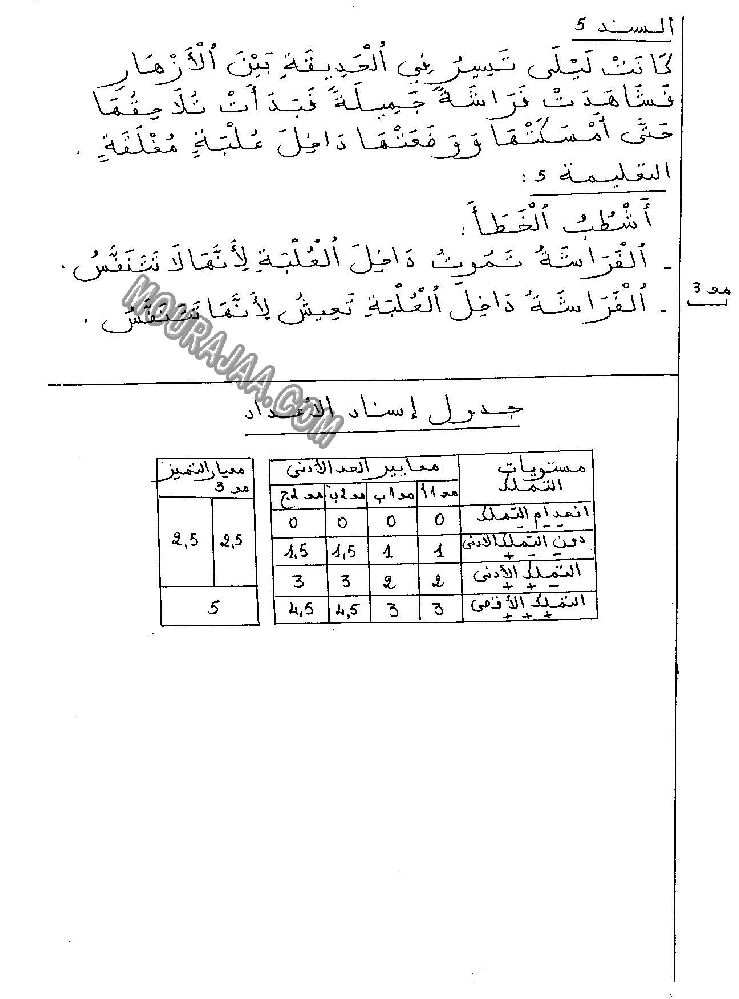 السند 5
كَانَتْ لَيْلَى تَسِيرُ فِي الْحَدِيقَةِ بَيْنَ الْأَزْهَارِ
فَشَاهَدَتْ فَرَاشَةً جَمِيلَةً فَبَدَأَتْ تُلَاحِقُهَا
حَتَّى أَمْسَكَتْهَا وَوَضَعَتْهَا دَاخِلَ عُلْبَةٍ مُغْلَقَةٍ .
التعليمة 5 :
أَشْطُبُ الْخَطَأَ :
- الْفَرَاشَةُ تَمُوتُ دَاخِلَ الْعُلْبَةِ لِأَنَّهَا لَا تَتَنَفَّسُ .
مع 3
- الْفَرَاشَةُ دَاخِلَ الْعُلْبَةِ تَعِيشُ لِأَنَّهَا تَتَنَفَّسُ .
MOURAJAA.COM
جدول إسناد الأعداد
مستويات التملك معايير الحد الأدنى معيار التميز
مع 1أ مع 1ب مع 2ب مع 2ج مع 3
انعدام التملك 0 0 0 0
دون التملك الأدنى + 1 1 1,5 1,5 2,5 2,5
التملك الأدنى + + 2 2 3 3
التملك الأقصى + + + 3 3 4,5 4,5 5